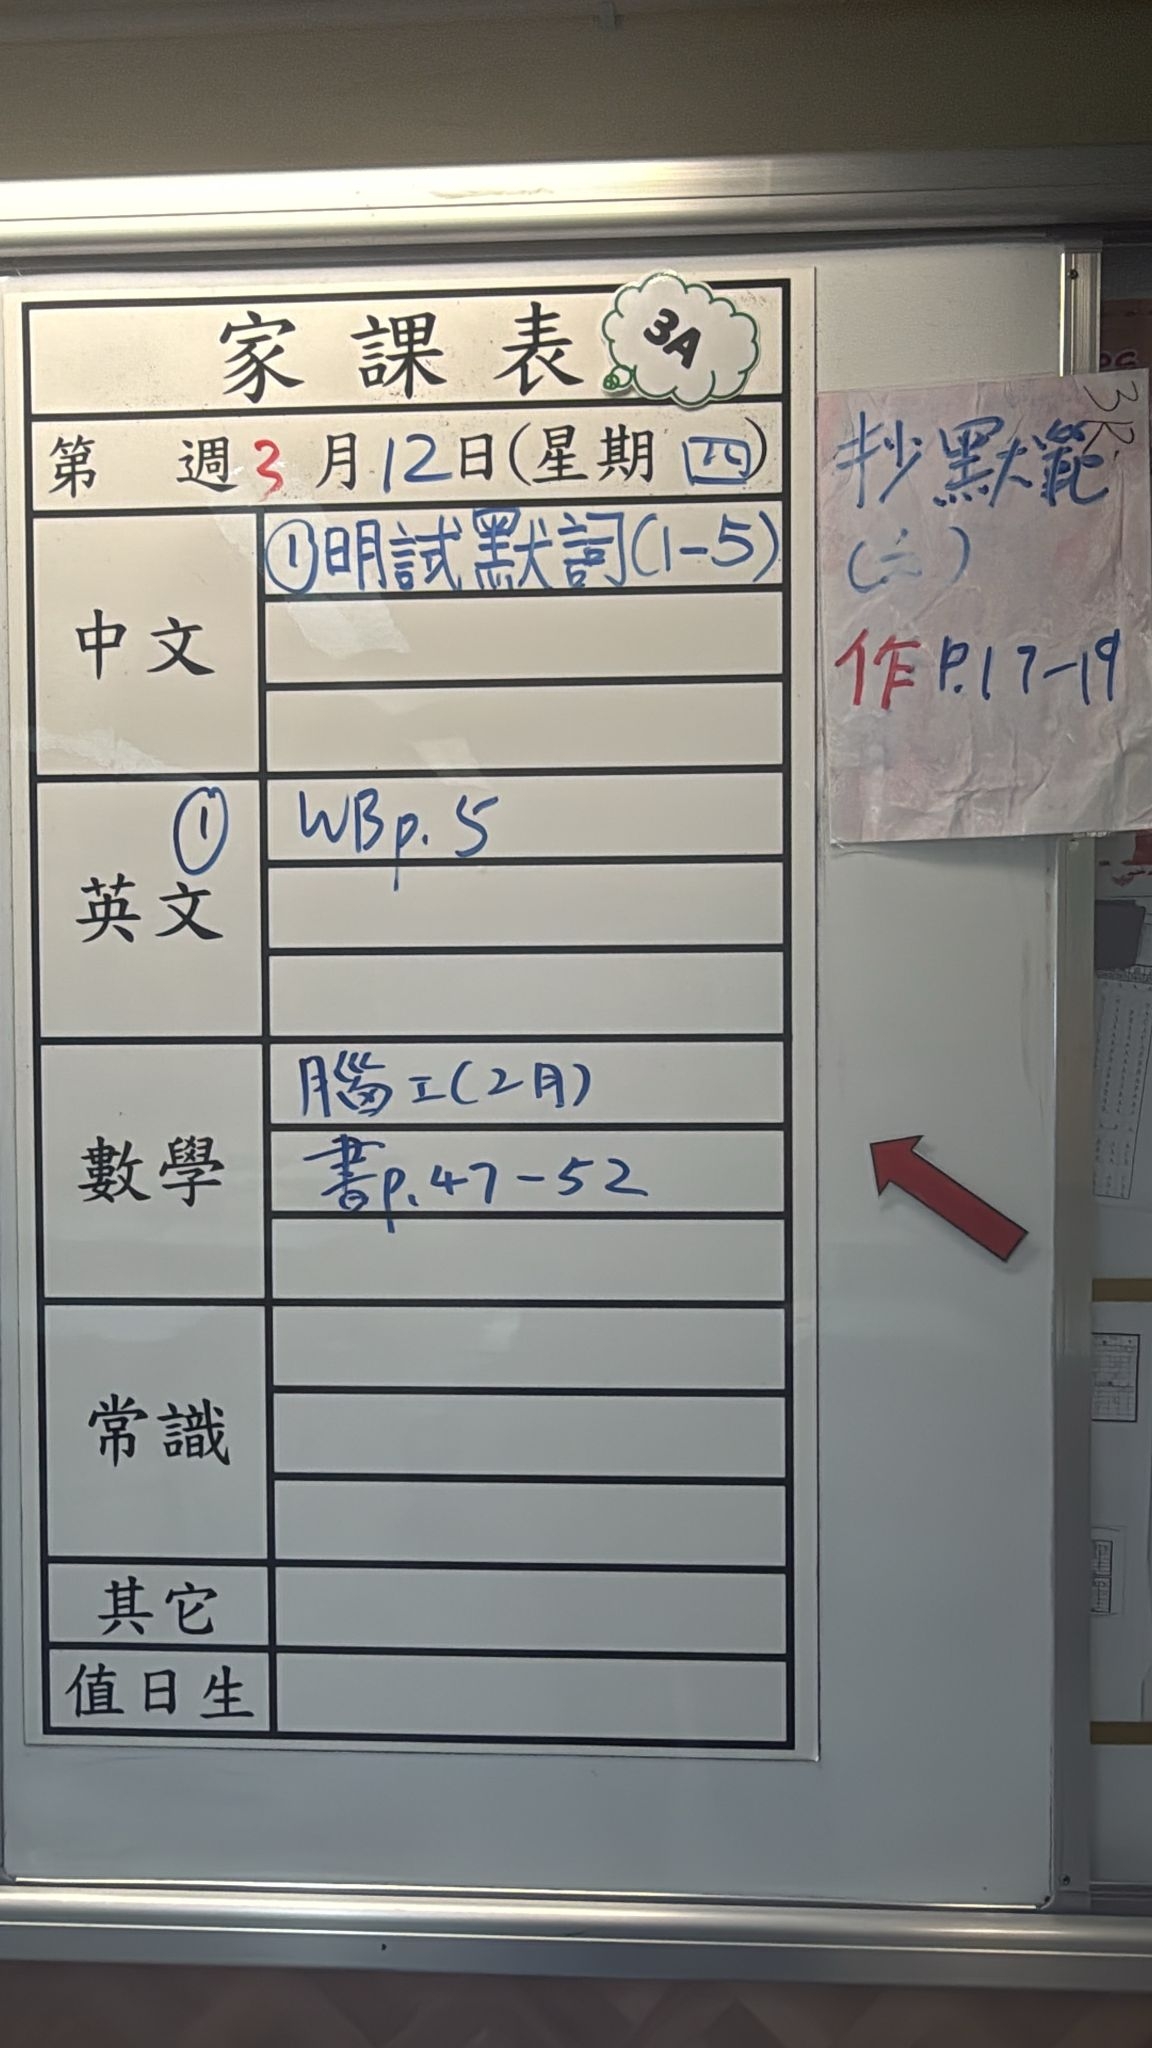 家課表 3A
第 週 3月12日(星期四)
中文
①明試默詞(1-5)
英文 ①
WB p.5
數學
腦工(2月)
書p.47-52
常識
其它
值日生
抄默範
(六)
作P.17-19